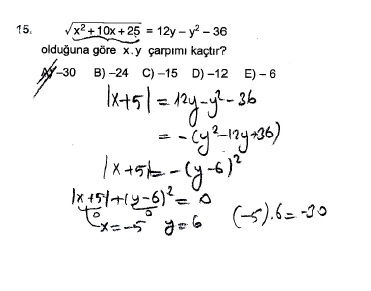 15. √x² + 10x + 25 = 12y – y² – 36
olduğuna göre x.y çarpımı kaçtır?
A) –30 B) –24 C) –15 D) –12 E) – 6
|x+5| = 12y-y²-36
= -(y²-12y+36)
|x+5| = -(y-6)²
|x+5|+(y-6)² = 0
0 0
x=-5 y=6 (-5).6=-30